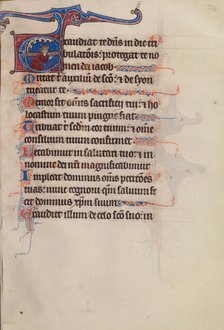 Exaudiat te dns in die tri
bulationis: protegat te no
men dei iacob
Mittat t auxilium de sco: & de syon
tueatur te
Memor sit omis sacrificii tui: &
holocaustum tuum pingue fiat
Tribuat t scdm cor tuum: & omne
consilium tuum confirmet
Letabimur in salutari tuo: & in
nomine dei nri magnificabimur
Impleat dominus omes petitiones
tuas: nunc cognoui qm saluum fe
cit dominus xpm suum
Exaudiet illum de celo sco suo: in